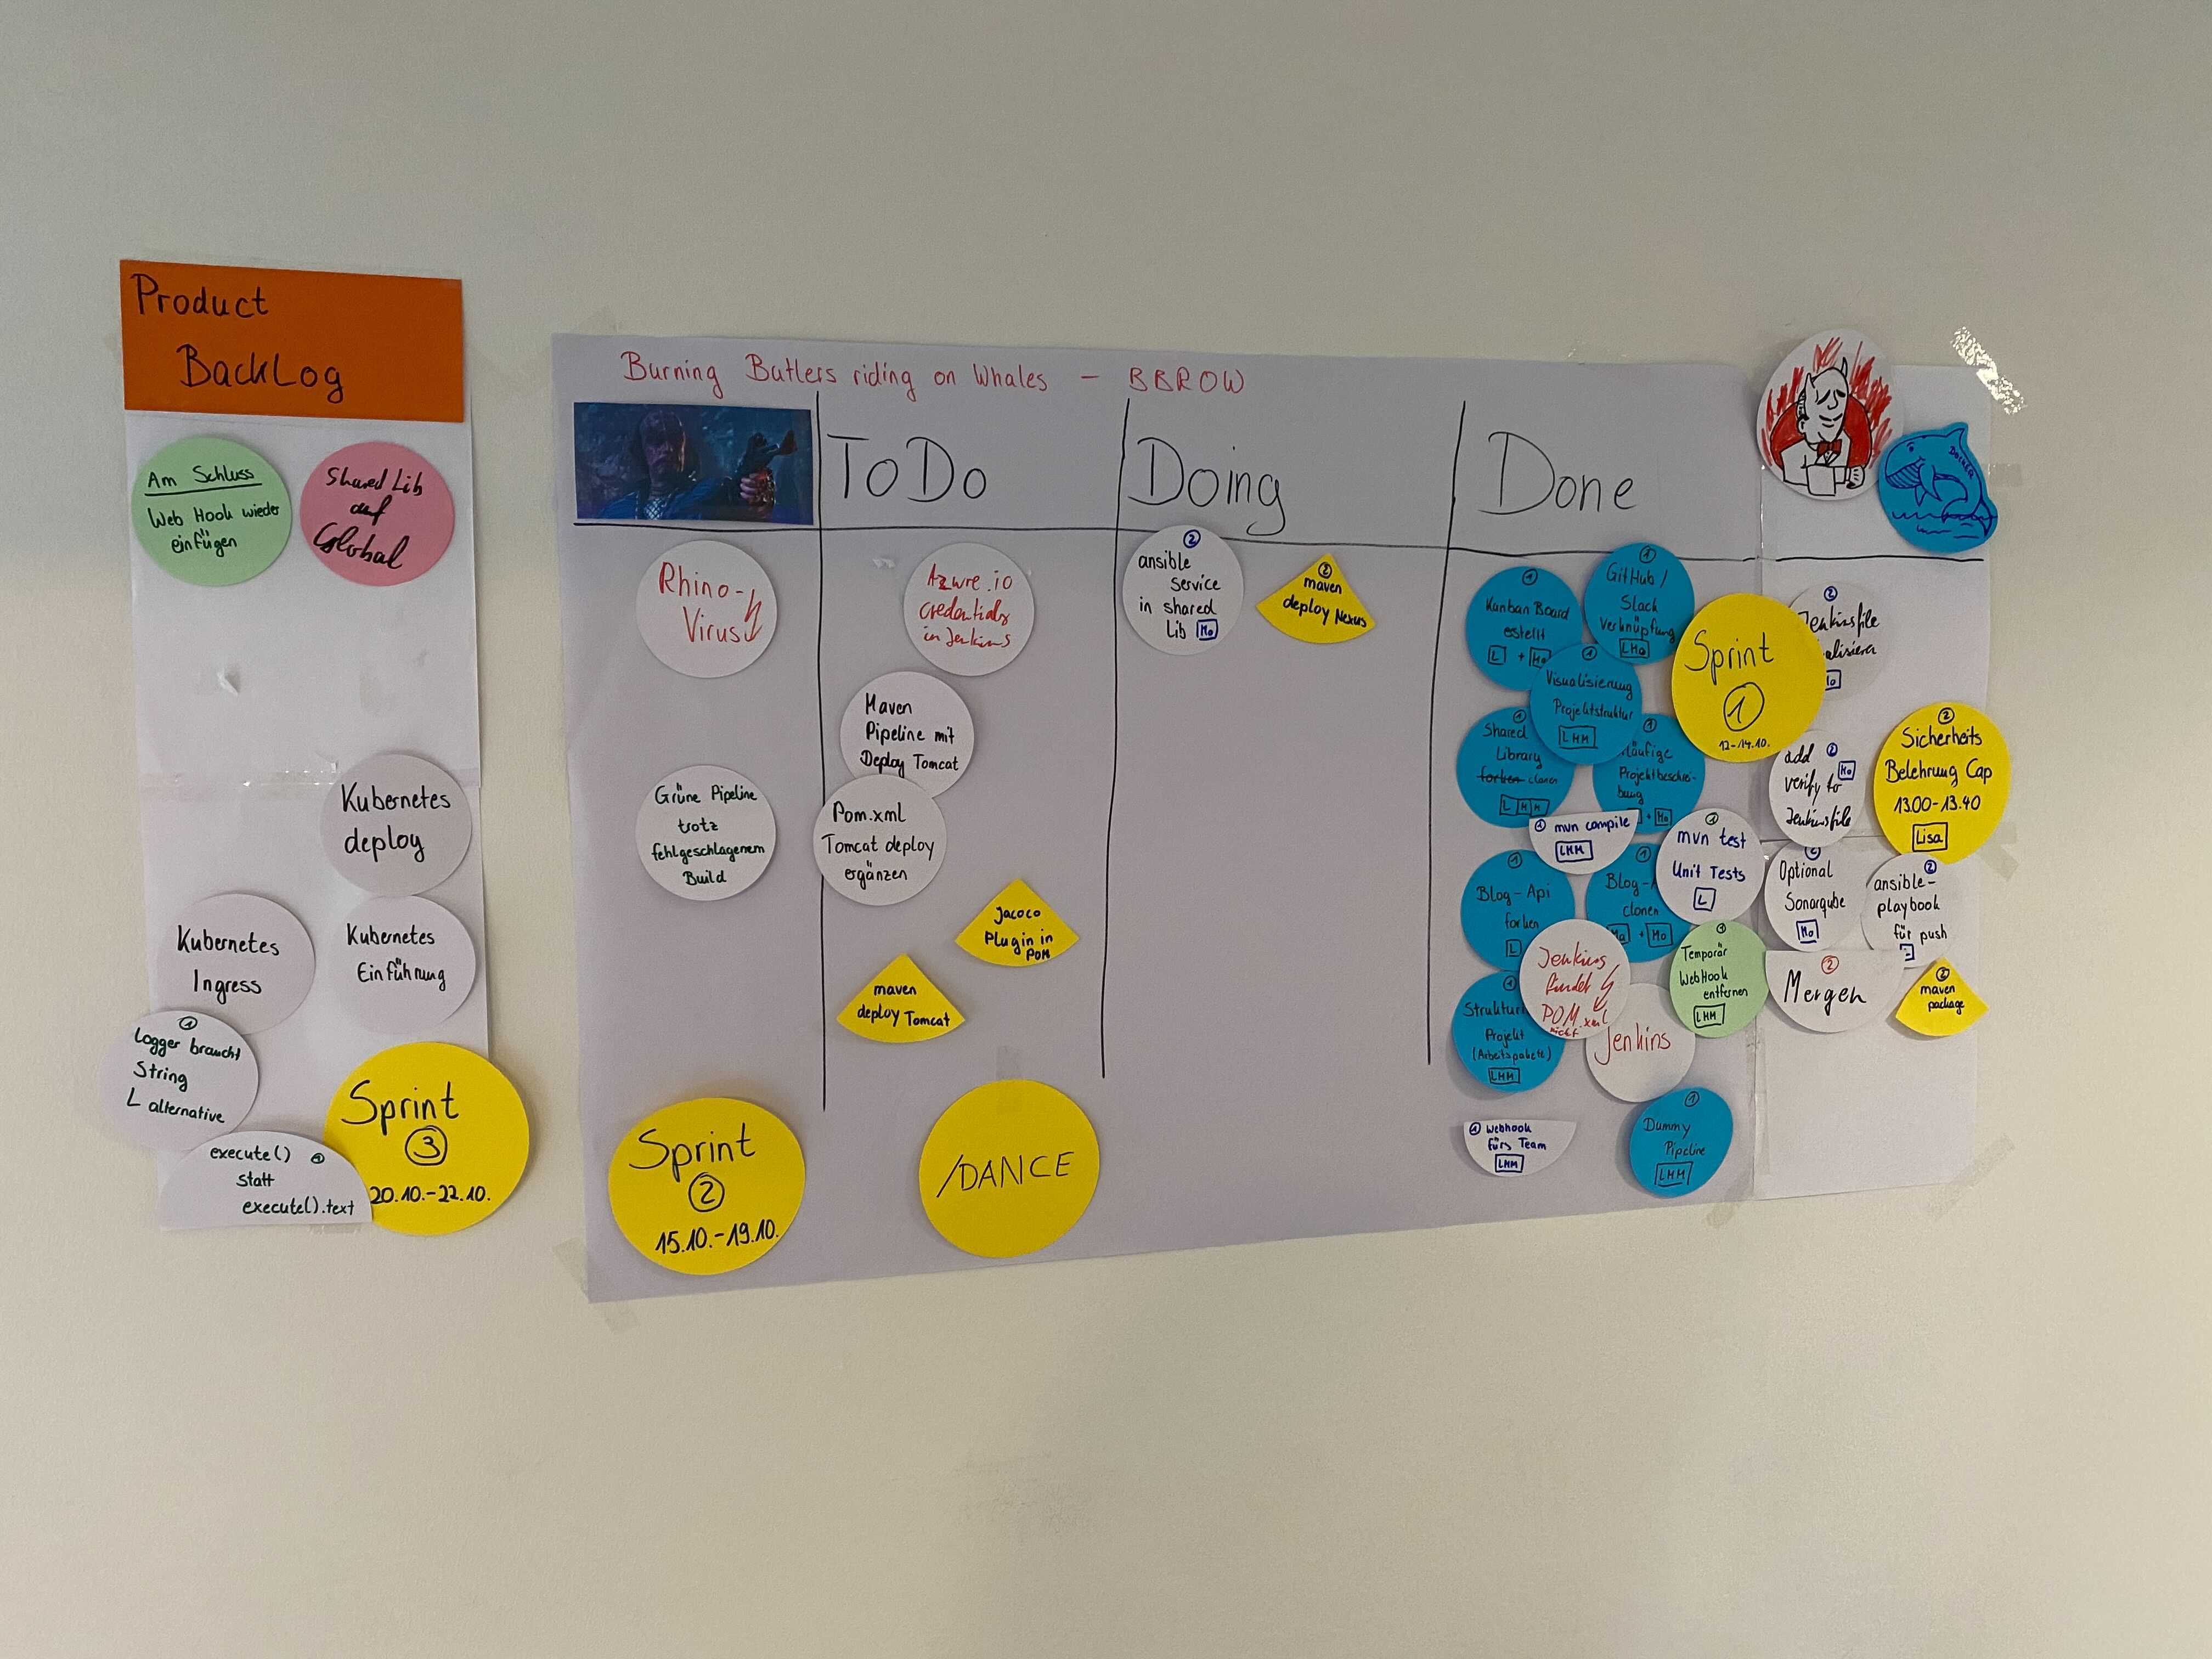 Product
BackLog
Am Schluss
Web Hook wieder
einfügen
Shared Lib
auf
Global
Kubernetes
deploy
Kubernetes
Ingress
Kubernetes
Einführung
1
Logger braucht
String
L alternative
execute() 1
statt
execute().text
Sprint
3
20.10.-22.10.
Burning Butlers riding on Whales - BBROW
Rhino-
Virus
Grüne Pipeline
trotz
fehlgeschlagenem
Build
Sprint
2
15.10.-19.10.
ToDo
Azure.io
credentials
in Jenkins
Maven
Pipeline mit
Deploy Tomcat
Pom.xml
Tomcat deploy
ergänzen
Jacoco
Plugin in
POM
maven
deploy Tomcat
/DANCE
Doing
2
ansible
service
in shared
Lib Mo
2
maven
deploy Nexus
Done
1
Kanban Board
estellt
L + Mo
1
GitHub /
Slack
verknüpfung
LMo
Sprint
1
12-14.10.
1
Visualisierung
Projektstruktur
LMM
1
Shared
Library
forken clonen
LMM
1
läufige
Projektbeschrei-
bung
+ Mo
1 mvn compile
LMM
1
mvn test
Unit Tests
L
1
Blog-Api
forken
L
1
Blog-A
clonen
Ma + Mo
Jenkins
findet
POM.xml
nicht
1
Temporär
WebHook
entfernen
LMM
1
Struktur
Projekt
(Arbeitspakete)
LMM
Jenkins
1 Webhook
fürs Team
LMM
1
Dummy
Pipeline
LMM
Docker
2
Jenkinsfile
alisieren
Mo
add 2
verify to Mo
Jenkinsfile
2
Sicherheits
Belehrung Cap
13.00-13.40
Lisa
2
Optional
Sonarqube
Mo
2
ansible-
playbook
für push
2
Mergen
2
maven
package